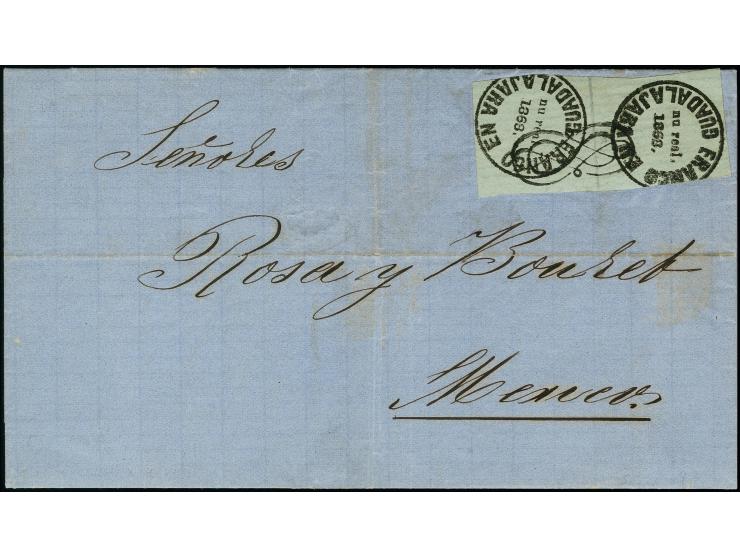 FRANCO EN GUADALAJARA
nu real.
1868.
FRANCO EN GUADALAJARA
nu real.
1868.
Señores
Rosa y Bouret
Mexico.